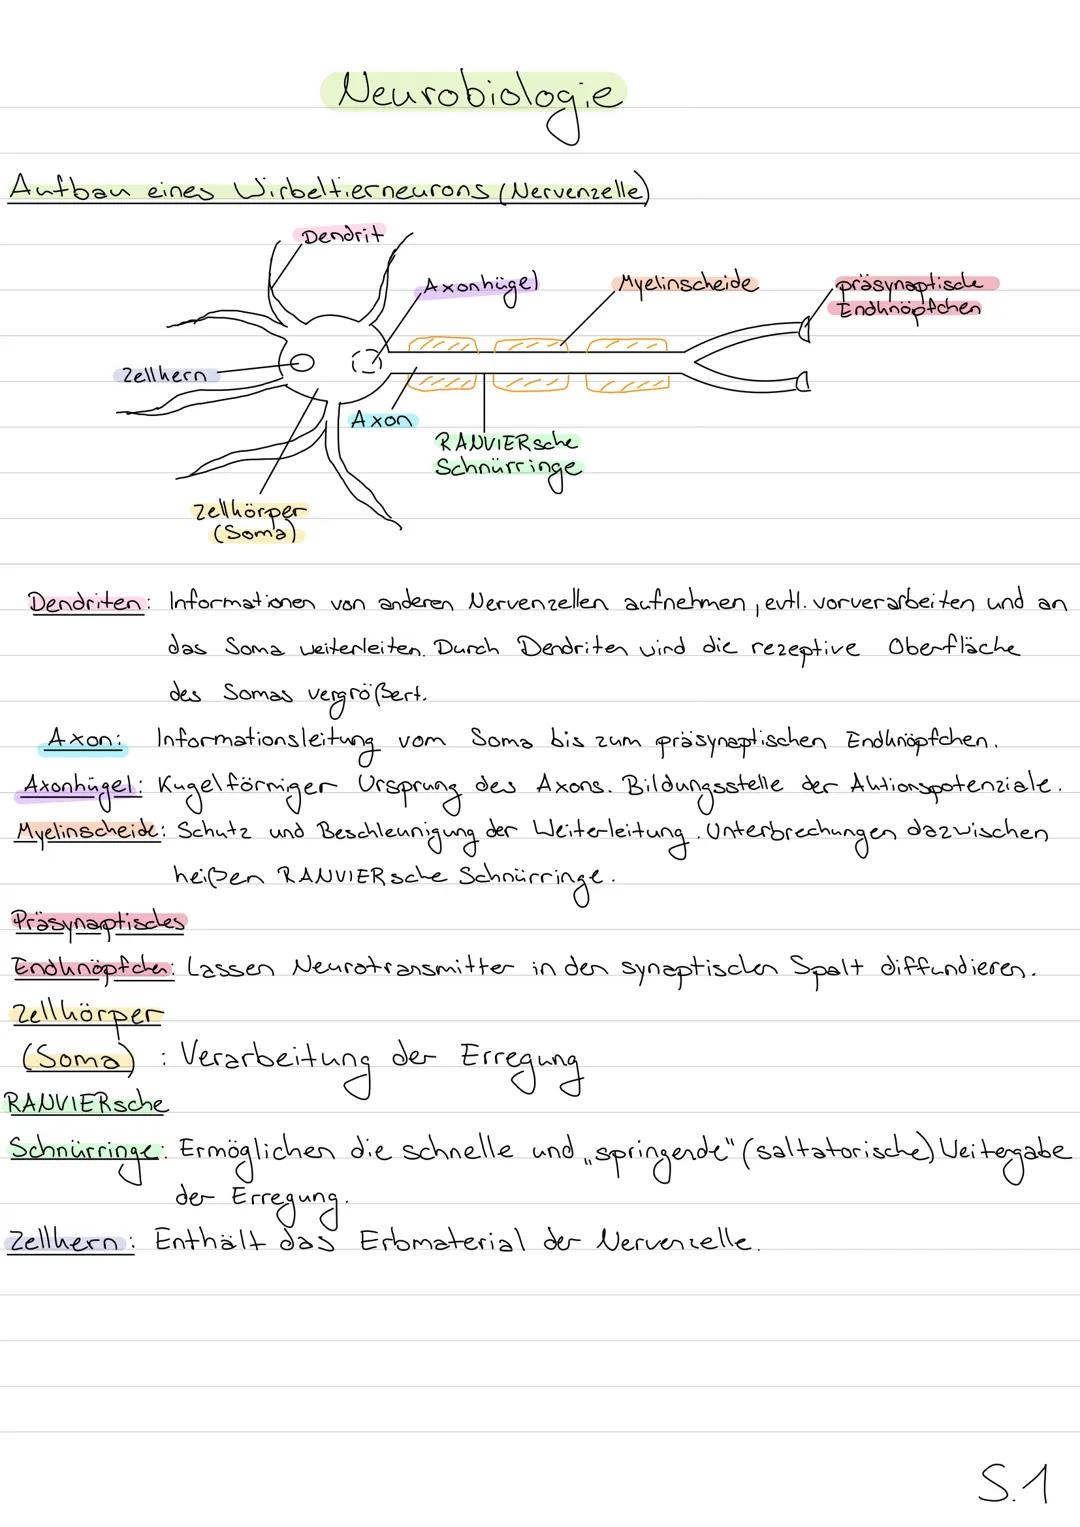 Neurobiologie
Aufbau eines Wirbeltierneurons (Nervenzelle)
Dendrit
Axonhügel
Myelinscheide
präsynaptische
Endknöpfchen
Zellkern
Axon
RANVIERsche
Schnürringe
Zellkörper
(Soma)
Dendriten: Informationen von anderen Nervenzellen aufnehmen, evtl. vorverarbeiten und an
das Soma weiterleiten. Durch Dendriten wird die rezeptive Oberfläche
des Somas vergrößert.
Axon: Informationsleitung vom Soma bis zum präsynaptischen Endknöpfchen.
Axonhügel: Kugelförmiger Ursprung des Axons. Bildungsstelle der Aktionspotenziale.
Myelinscheide: Schutz und Beschleunigung der Weiterleitung. Unterbrechungen dazwischen
heißen RANVIERsche Schnürringe.
Präsynaptisches
Endknöpfchen: Lassen Neurotransmitter in den synaptischen Spalt diffundieren.
Zellkörper
(Soma) : Verarbeitung der Erregung
RANVIERsche
Schnürringe: Ermöglichen die schnelle und „springende" (saltatorische) Weitergabe
der Erregung.
Zellkern: Enthält das Erbmaterial der Nervenzelle.
S.1